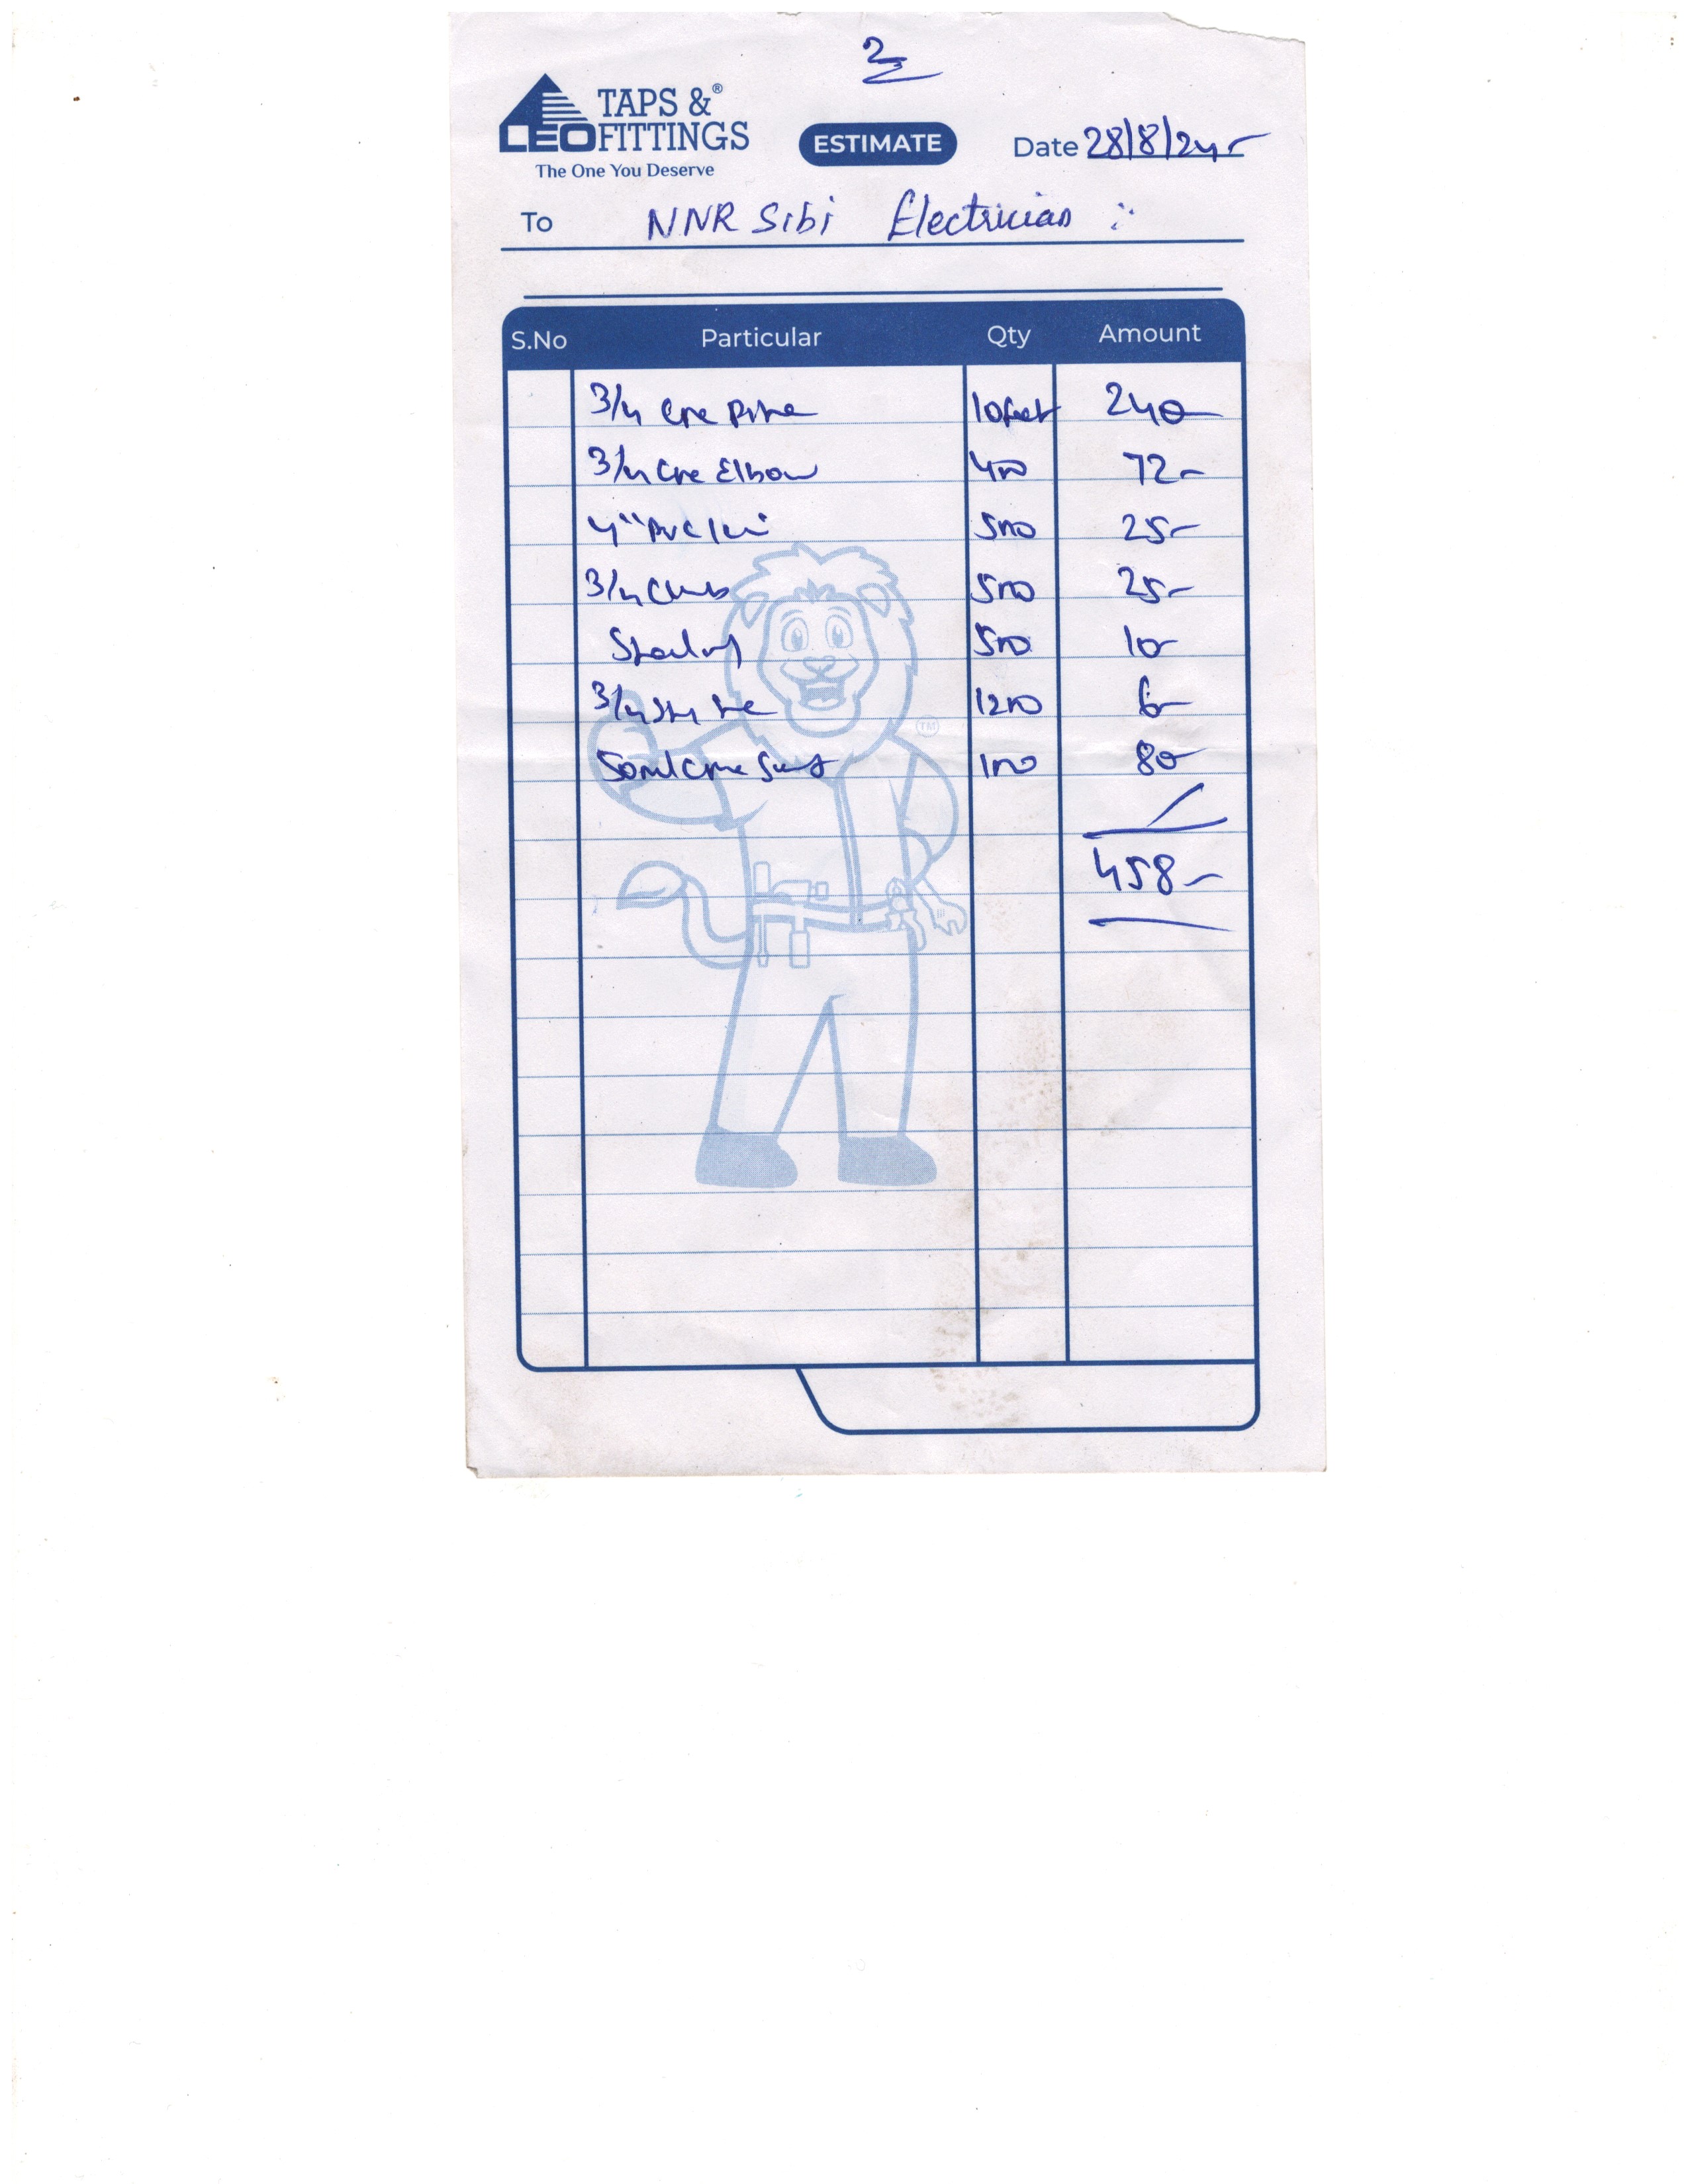 2
TAPS & ®
LEO FITTINGS
The One You Deserve
ESTIMATE
Date 28/8/24
To NNR Sibi Electrician :
S.No Particular Qty Amount
3/4 cpvc Pipe 10feet 240
3/4 cpvc Elbow 4no 72
4" pvc 5no 25
3/4 5no 25
5no 10
3/4 12no 6
50ml 1no 80
TM
458